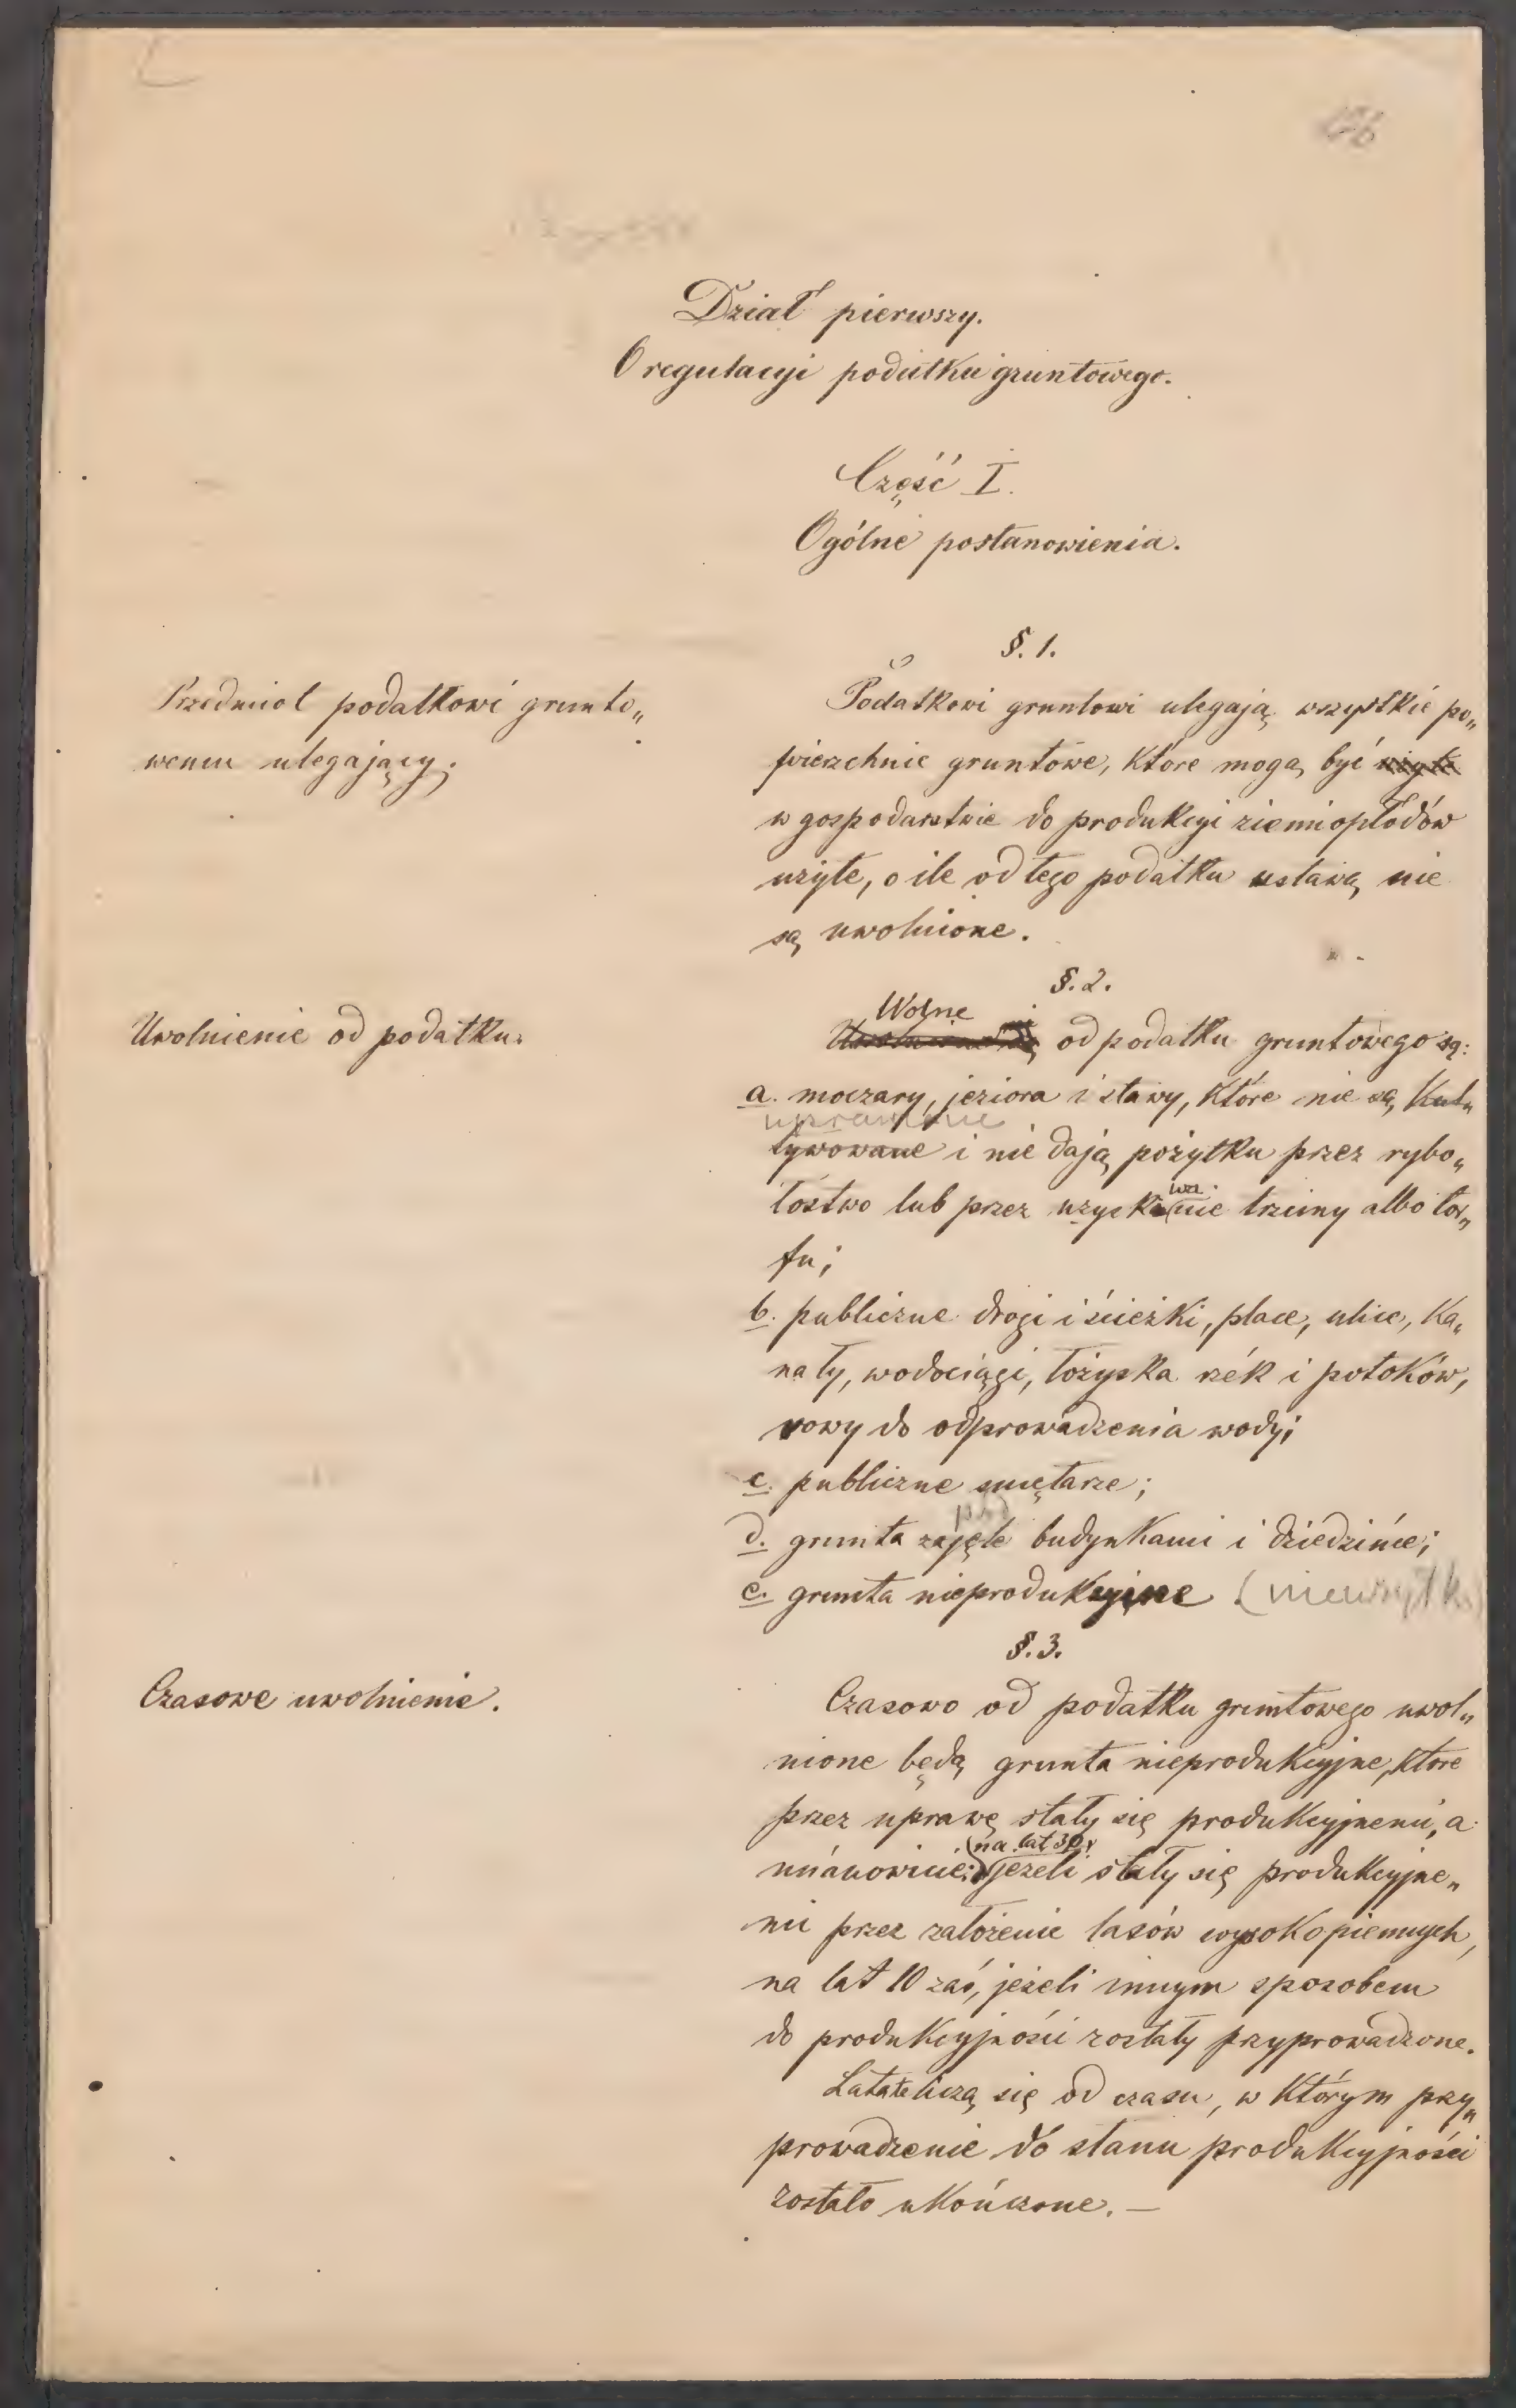 Dział pierwszy.
O regulacyi podatku gruntowego.
Część I.
Ogólne postanowienia.
§. 1.
Przedmiot podatkowi grunto„
wemu ulegający.
Podatkowi gruntowi ulegają wszystkie po„
wierzchnie gruntowe, które mogą być użyte
w gospodarstwie do produkcyi ziemiopłodów
użyte, o ile od tego podatku ustawą nie
są uwolnione.
§. 2.
Uwolnienie od podatku.
Wolne
od podatku gruntowego są:
a. moczary, jeziora i stawy, które nie są kul„
uprawione
tywowane i nie dają pożytku przez rybo„
wa
łostwo lub przez uzyskanie trzciny albo tor„
fu;
b. publiczne drogi i ścieżki, place, ulice, ka„
nały, wodociągi, łożyska rzék i potoków,
rowy do odprowadzenia wody;
c. publiczne smętarze;
pod
d. grunta zajęte budynkami i dziedzińce;
e. grunta nieprodukcyjne (nieużytki)
§. 3.
Czasowe uwolnienie.
Czasowo od podatku gruntowego uwol„
nione będą grunta nieprodukcyjne, które
przez uprawę stały się produkcyjnemi, a
na lat 30,
mianowicie: jeżeli stały się produkcyjne„
mi przez założenie lasów wysokopiennych,
na lat 10 zaś, jeżeli innym sposobem
do produkcyjności zostały przyprowadzone.
Lata te liczą się od czasu, w którym przy„
prowadzenie do stanu produkcyjności
zostało ukończone. —